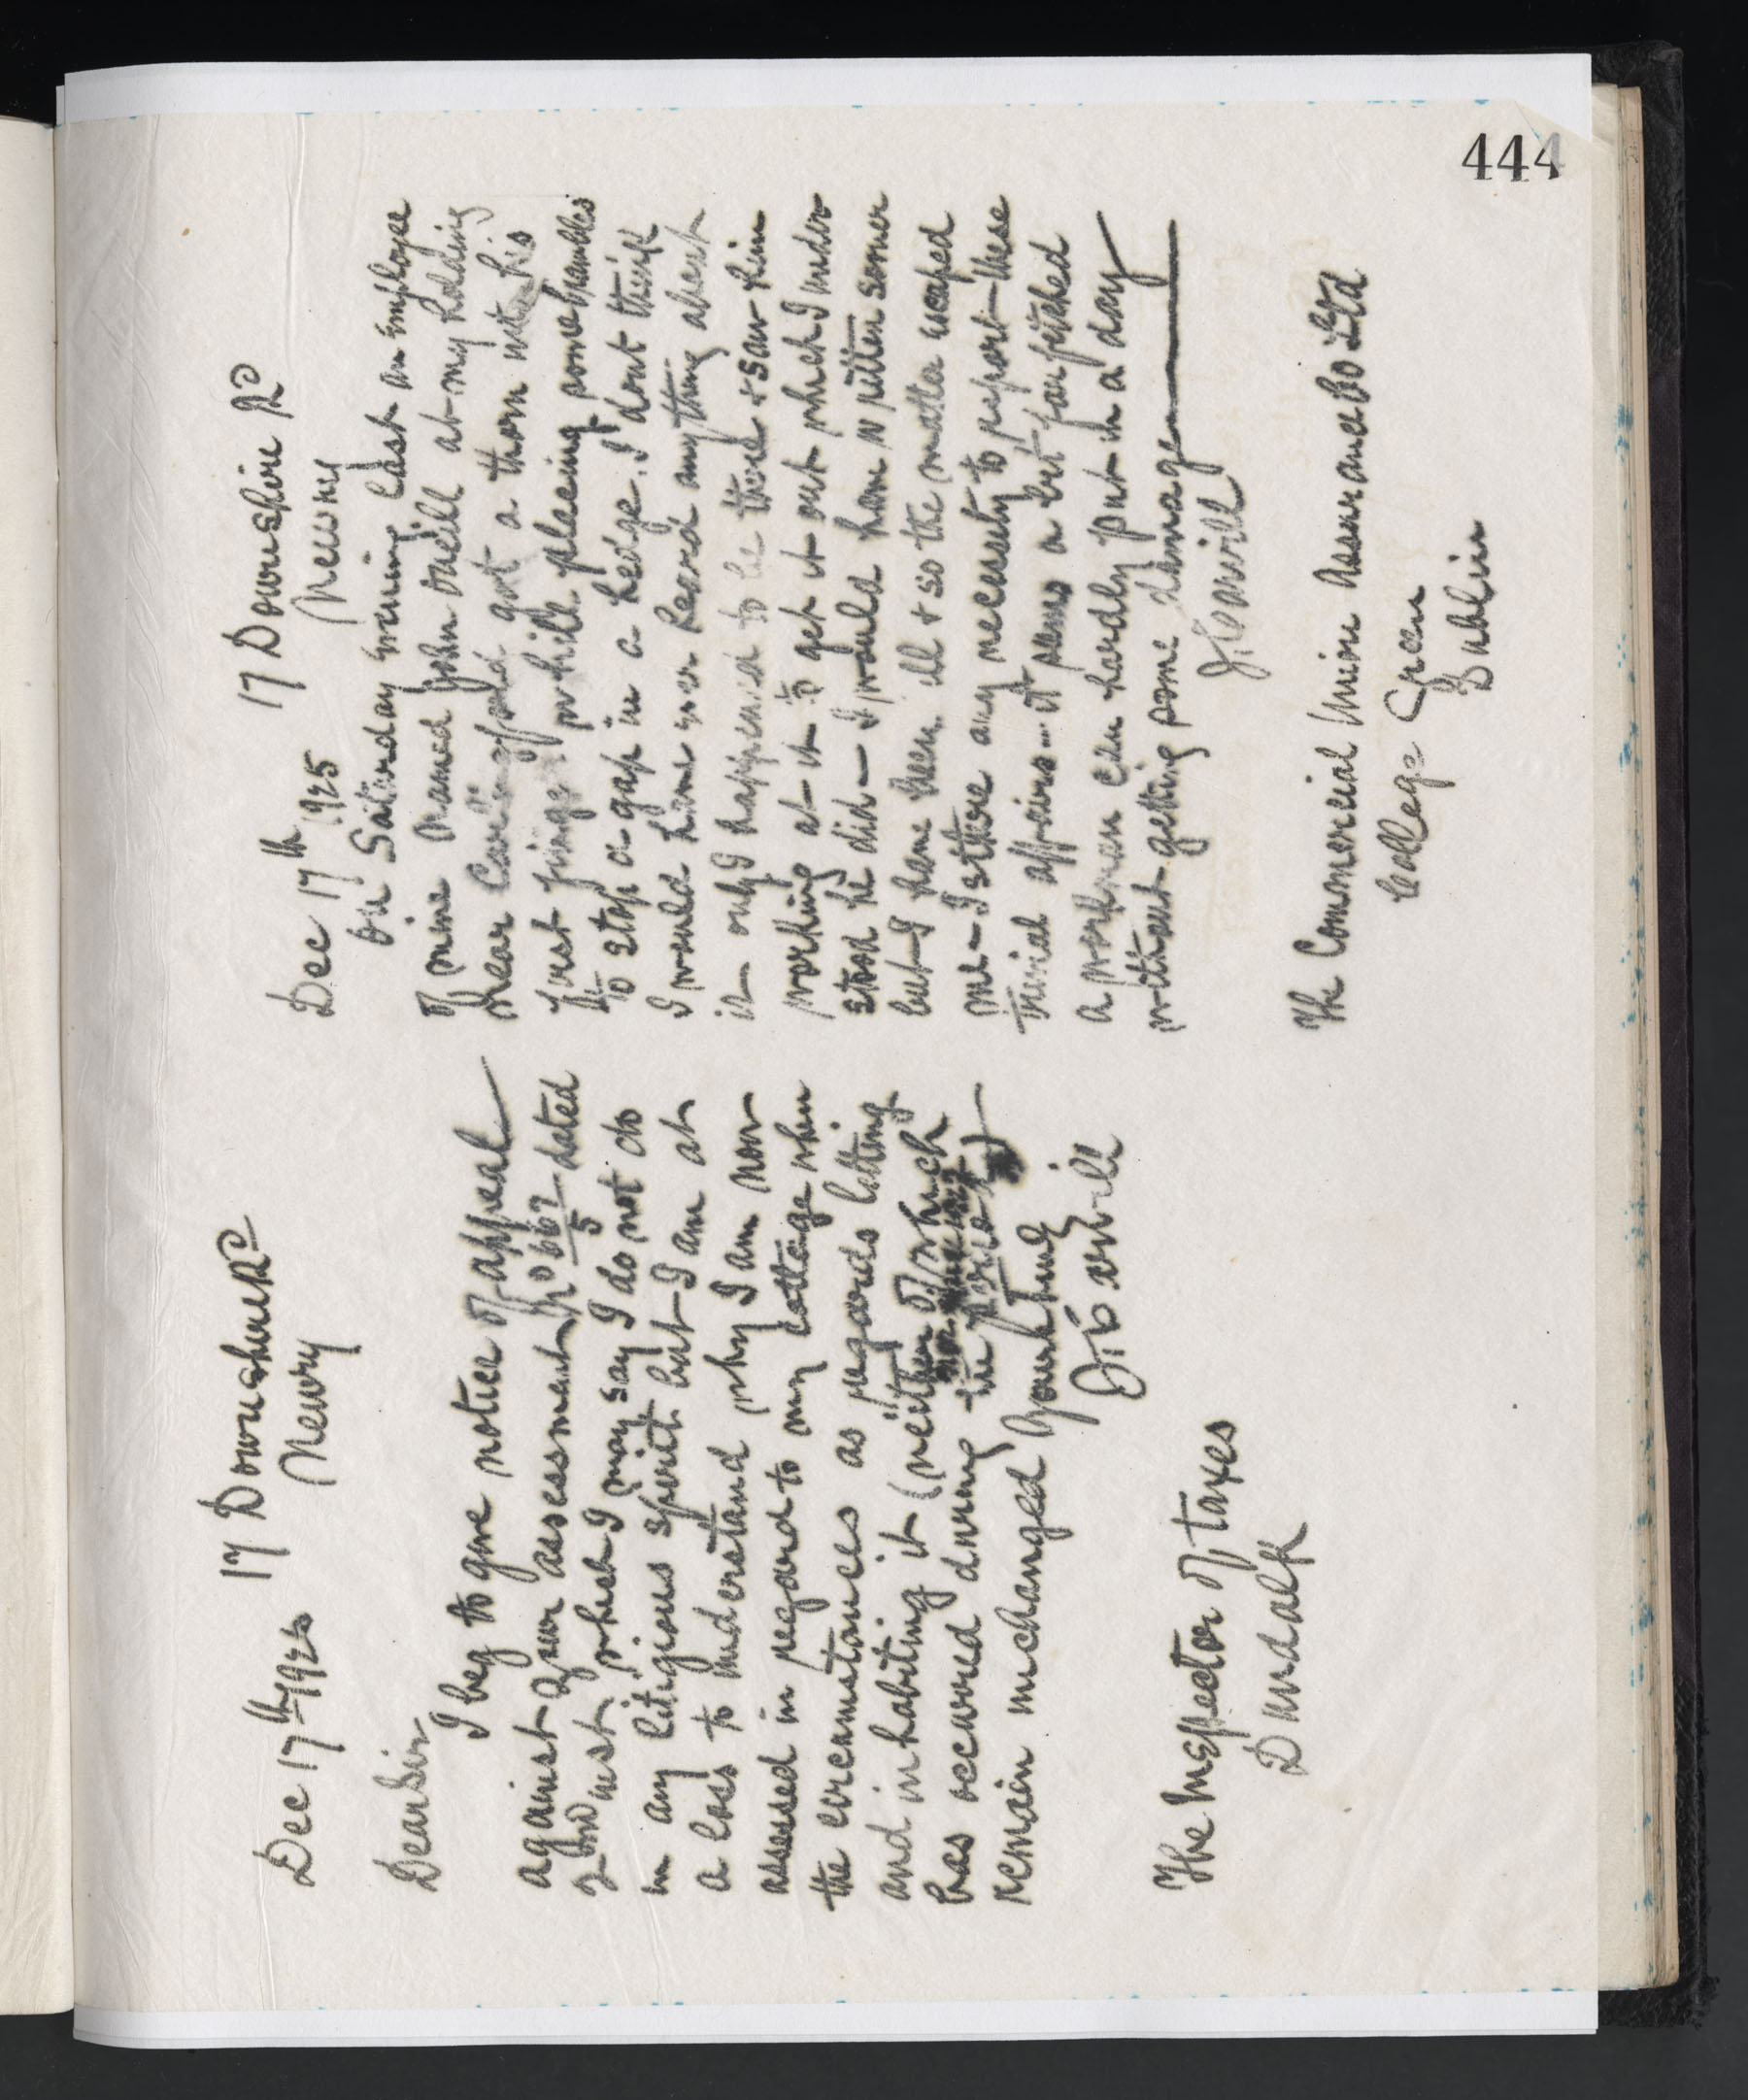 444
Dec 17th 1925 17 Downshire Rd
Newry
Dear Sir
I beg to give notice of appeal
against your assessment No 667/5 dated
2nd inst which I may say I do not do
in any litigious spirit but I am at
a loss to understand why I am now
assessed in regard to my cottage when
the circumstances as regards letting
and inhabiting it (neither of which
has occurred during the
remain unchanged Yours truly
The Inspector of taxes
Dundalk
Dec 17th 1925 17 Downshire Rd
Newry
On Saturday evening last an employee
of mine named John Oneill at my holding
near Carlingford got a thorn into his
first finger while placing some brambles
to stop a gap in a hedge. I dont think
I would have ever heard anything about
it only I happened to be there & saw him
working at it to get it out which I under
stood he did — I would have written sooner
but I have been ill & so the matter escaped
me — Is there any necessity to report these
trivial affairs — it seems a bit far fetched
a workman can hardly put in a day
without getting some damage
The Commercial Union Assurance Co Ltd
College Green
Dublin